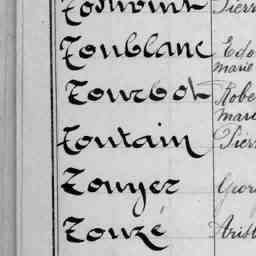 Pierr
Toublanc Edo
Marie
Tourbot Robe
Marc
Toutain Pierr
Touyer Geor
Touzé Arist